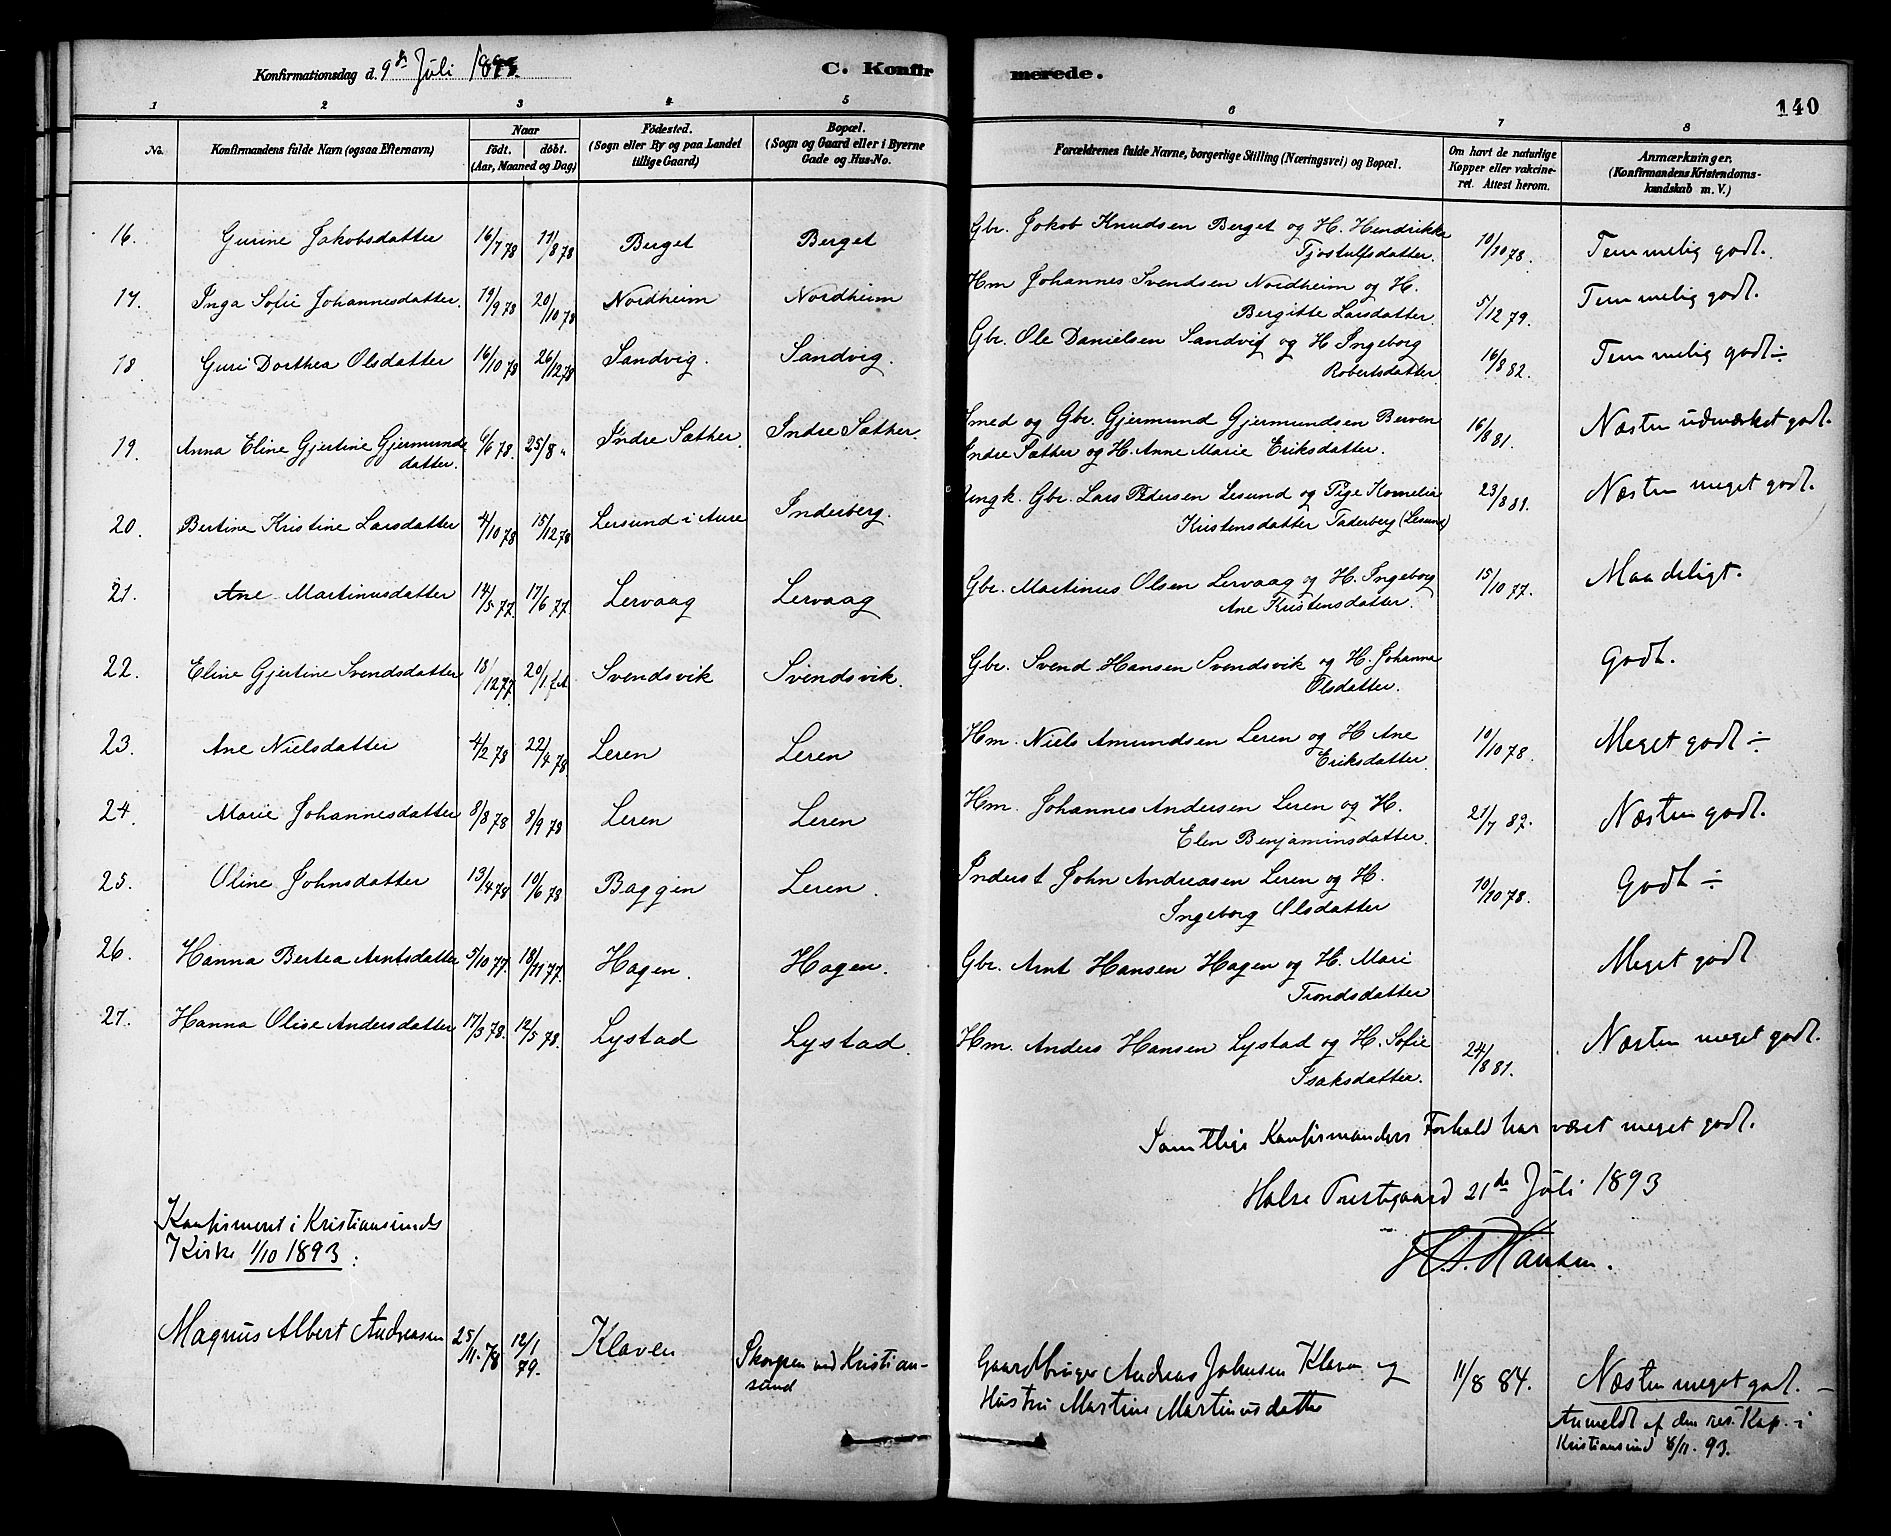 Konfirmationsdag d. 9de Juli 1893.
C. Konfirmerede.
140
1 2 3 4 5 6 7 8
No. Konfirmandens fulde Navn (ogsaa Efternavn) Naar født. døbt. (Aar, Maaned og Dag) Fødested. (Sogn eller By og paa Landet tillige Gaard) Bopæl. (Sogn og Gaard eller i Byerne Gade og Hus-No. Forældrenes fulde Navne, borgerlige Stilling (Næringsvei) og Bopæl. Om havt de naturlige Kopper eller vakcineret. Attest herom. Anmærkninger. (Konfirmandens Kristendomskundskab m. V.)
16. Gurine Jakobsdatter 16/7 78 11/8 78 Berget Berget Gbr. Jakob Knudsen Berget og H. Hendrikke 10/10 78. Temmelig godt.
Tjostulfsdatter.
17. Inga Sofie Johannesdatter. 19/9 78 20/10 78 Nordheim Nordheim Hm Johannes Svendsen Nordheim og H. 5/12 79. Temmelig godt.
Bergitte Larsdatter.
18. Guri Dorthea Olsdatter 16/10 78 26/12 78 Sandvig. Sandvig. Gbr. Ole Danielsen Sandvig og H Ingeborg 16/8 82. Temmelig godt ÷
Robertsdatter
19. Anna Eline Gjertine Gjermunds 6/6 78. 25/8 " Indre Sæther. Indre Sæther. Smed og Gbr. Gjermund Gjermundsen Berven 16/8 81. Næsten udmærket godt.
datter. Indre Sæther og H. Anne Marie Eriksdatter.
20. Bertine Kristine Larsdatter 4/10 78 15/12 78 Lersund i Aure Inderberg. Ungk. Gbr. Lars Pedersen Lesund og Pige Kornelia 23/8 81. Næsten meget godt.
Kristensdatter Inderberg (Lesund)
21. Ane Martinusdatter 14/5 77. 17/6 77. Lervaag Lervaag Gbr. Martinus Olsen Lervaag og H. Ingeborg 15/10 77. Maadeligt.
Ane Kristensdatter.
22. Eline Gjertine Svendsdatter 18/12 77. 20/1 Svendsvik Svendsvik. Gbr. Svend Hansen Svendsvik og H. Johanna Godt.
Olsdatter.
23. Ane Nielsdatter 4/2 78 22/4 78 Leren Leren Hm. Niels Amundsen Leren og H Ane 10/10 78. Meget godt ÷
Eriksdatter.
24. Marie Johannesdatter 8/8 78 8/9 78 Leren Leren Hm. Johannes Andersen Leren og H. 21/7 82. Næsten godt.
Elen Benjaminsdatter.
25. Oline Johnsdatter 13/4 78 10/6 78 Baggen Leren. Inderst John Andreasen Leren og H. 10/10 78. Godt ÷
Ingeborg Olsdatter
26. Hanna Bertea Arntsdatter 5/10 77. 18/11 77. Hagen. Hagen. Gbr. Arnt Hansen Hagen og H. Mari Meget godt
Trondsdatter
27. Hanna Olise Andersdatter 17/3 78. 12/5 78. Lystad Lystad. Hm. Anders Hansen Lystad og H. Sofie 24/8 81. Næsten meget godt.
Isaksdatter.
Samtlige Konfirmanders Forhold har været meget godt.
Halse Prestegaard 21de Juli 1893
Hansen.
Konfirmeret i Kristiansunds
Kirke 1/10 1893:
Magnus Albert Andreasen 25/11. 78 12/1 79. Klaven Skorpen ved Kristiansund Gaardbruger Andreas Johnsen Klaven og 11/8 84. Næsten meget godt. –
Hustru Martine Martinusdatter
Anmeldt af den res. Kap. i
Kristiansund 8/11. 93.